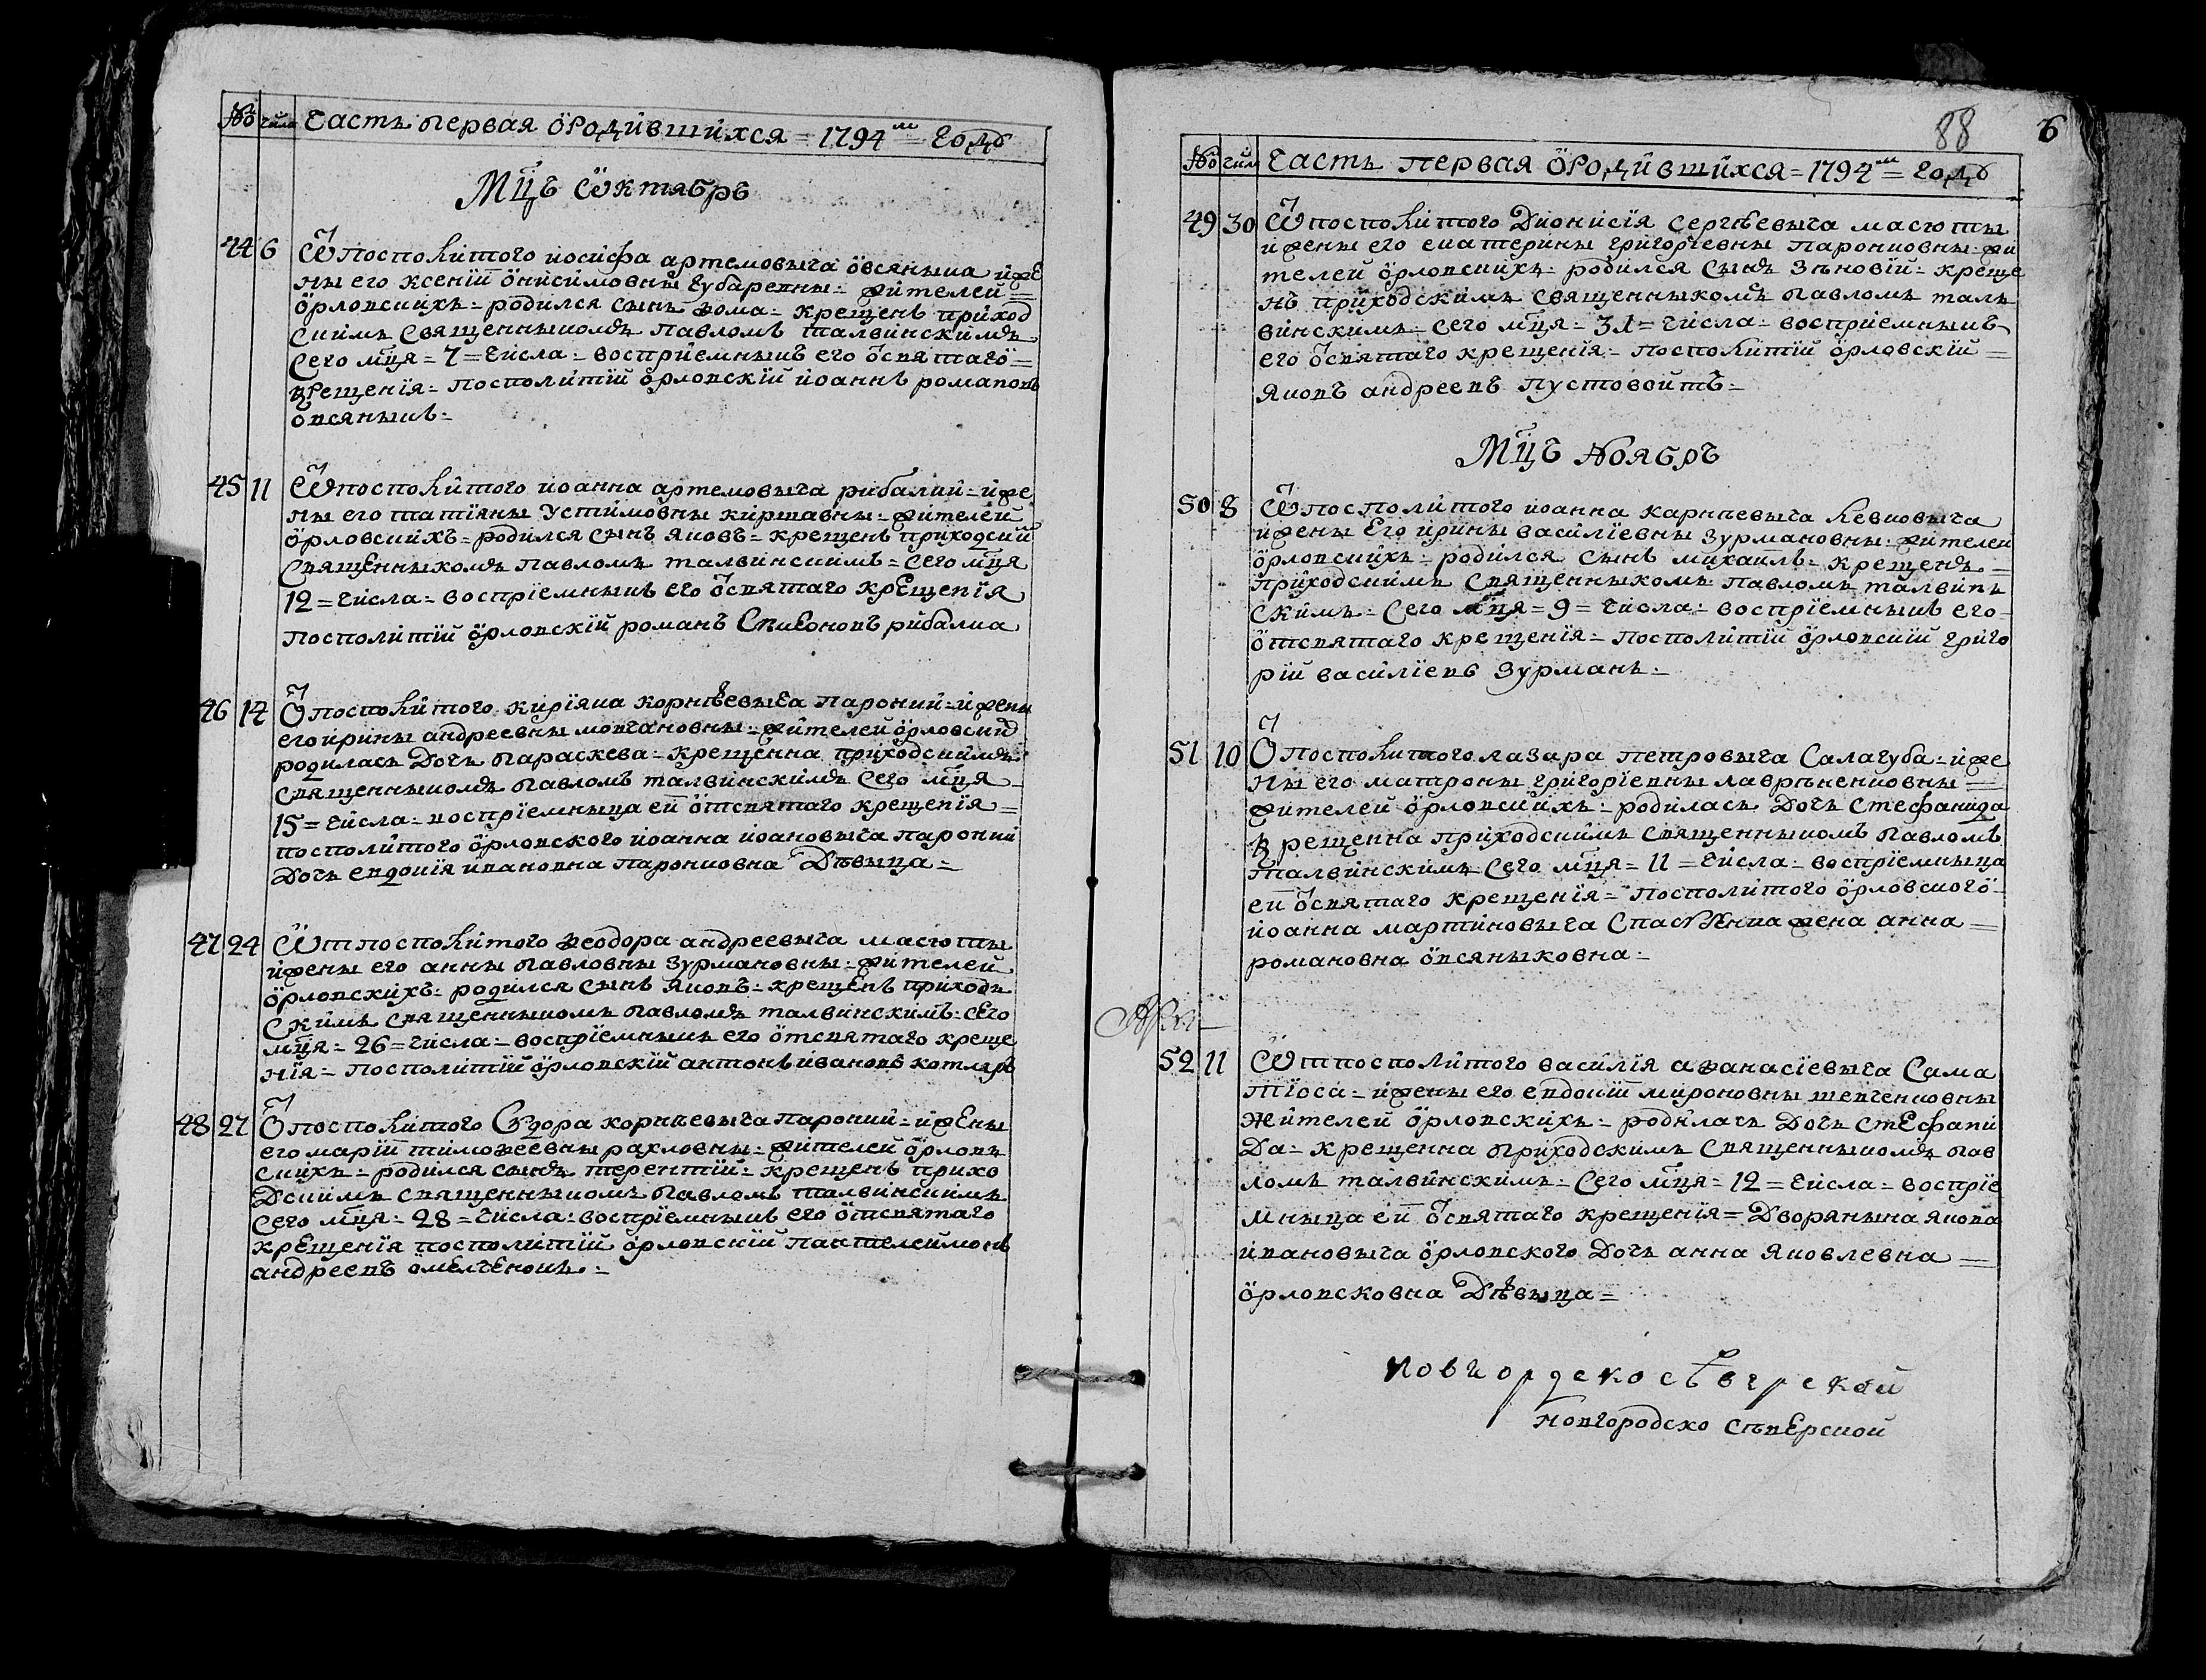 № число Часть первая ѿ родившихся = 1794м = годѣ
Мцъ Октябръ
44 6 Ѿ посполитого иосифа артемовыча овсяныка и же
ны его ксении онисимовны губаревны = жителей =
орловскихъ = родился сынъ ѳома = крещенъ приход
скимъ священныкомъ павломъ талвинскимъ
сего мця = 7 = числа = восприемныкъ его ѿ святаго =
крещенія = посполитій орловскій иоаннъ романовъ
овсяныкъ =
45 11 Ѿ посполитого иоанна артемовыча рибалки = и же
ны его татіяны устимовны киршавны = жителей
орловскихъ = родился сынъ яковъ = крещенъ приходским
священныкомъ павломъ талвинскимъ = сего мця
12 = числа = воспріемныкъ его ѿ святаго крещенія
посполитій орловскій романъ Спиеоновъ рибалка
46 14 Ѿ посполитого киріяка корнѣевыча паронки = и жены
его ирины андреевны мовчановны = жителей орловских
родилась дочь параскева = крещенна приходскимъ
священныкомъ павломъ талвинскимъ сего мця
15 = числа = воспріемныца ей ѿтсвятаго крещенія =
посполитого орловского иоанна иоановыча паронки
дочь евдокія ивановна паронковна дѣвыца =
47 24 Ѿт посполитого ѳеодора андреевыча масюты
и жены его анны павловны зурмановны = жителей
орловскихъ = родился сынъ яковъ = крещенъ приходъ
скимъ священныкомъ павломъ талвинскимъ = сего
мця = 26 = числа = воспріемныкъ его ѿтсвятаго креще
нія = посполитій орловскій антонъ ивановъ котляръ
48 27 Ѿ посполитого Сидора корнѣевыча паронки = и жены
его маріи тимоѳеевны рахловны = жителей орловъ
скихъ = родился сынъ терентій = крещенъ прихо
дскимъ священныкомъ павломъ талвинскимъ
сего мця = 28 = числа = воспріемныкъ его ѿтсвятаго
крещенія посполитій орловскій пантелеймонъ
андреевъ омелченокъ =
88 6
№ число Часть первая ѿ родившихся = 1794м = годѣ
49 30 Ѿ посполитого Дионисія сергѣевыча масюты
и жены его екатерины григоріевны паронковны = жи
телей орловскихъ = родился сынъ зѣновій = креще
нъ приходскимъ священныкомъ павломъ талъ
винскимъ = сего мця = 31 = числа = воспріемныкъ
его ѿ святаго крещенія = посполитій орловскій =
яковъ андреевъ пустовойтъ =
Мцъ Ноябръ
50 8 Ѿ посполитого иоанна карпѣевыча левковыча
и жены его ирины василіевны зурмановны = жителей
орловскихъ = родился сынъ михаилъ = крещенъ =
приходскимъ священныкомъ павломъ талвинъ
скимъ = сего мця = 9 = числа = воспріемныкъ его =
ѿтсвятаго крещенія = посполитій орловскій григо
рій василіевъ зурманъ =
51 10 Ѿ посполитого лазара петровыча Салагуба = и же
ны его матроны григоріевны лаврѣненковны =
жителей орловскихъ = родилась дочь стефанида
крещенна приходскимъ священныкомъ павломъ
талвинскимъ = сего мця = 11 = числа = воспріемныца
ей ѿ святаго крещенія = посполитого орловского =
иоанна мартиновыча жена анна =
романовна овсяныковна =
52 11 Ѿт посполитого василія аѳанасіевыча Сама
тюси = и жены его евдокіи мироновны шевченковны
жителей орловскихъ = родилась дочь стефани
да = крещенна приходскимъ священныкомъ пав
ломъ талвинскимъ = сего мця = 12 = числа = воспріе
мныца ей ѿ святаго крещенія = дворянына якова
ивановыча орловского дочь анна яковлевна =
орловсковна дѣвыца =
новгородскосѣверской
новгородско сѣверской